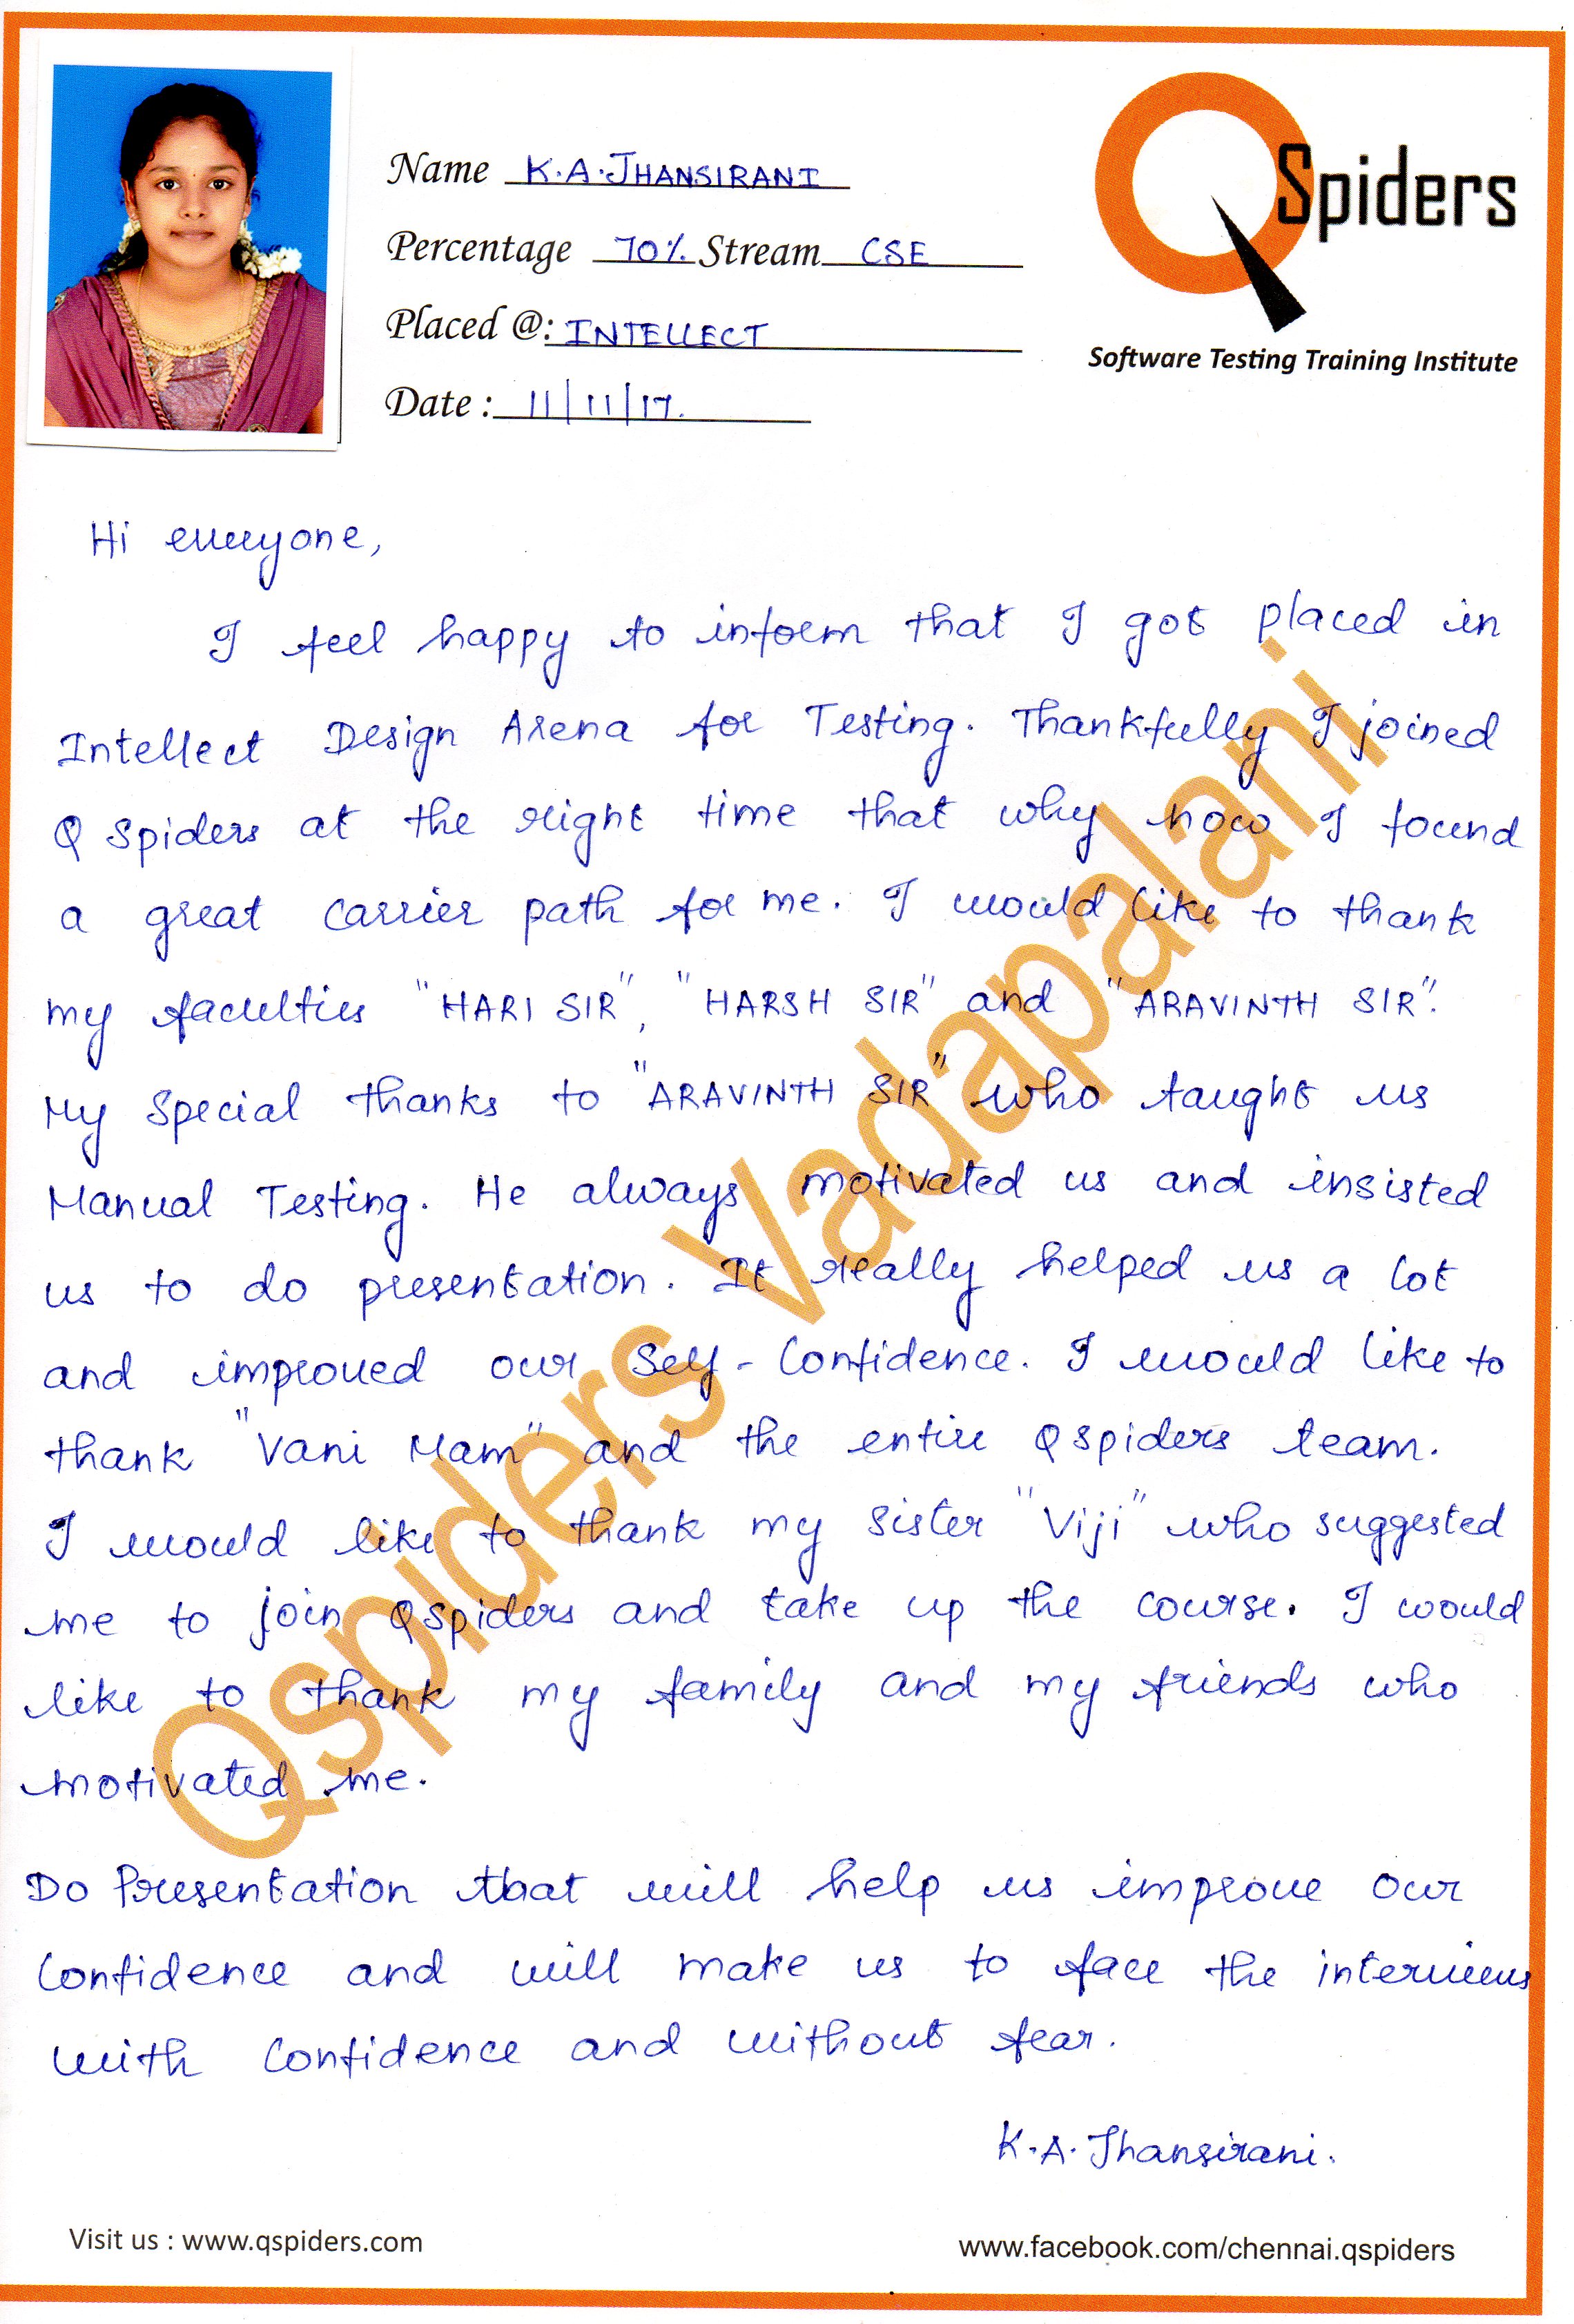 Name K.A.JHANSIRANI
QSpiders
Percentage 70% Stream CSE
Placed @: INTELLECT
Software Testing Training Institute
Date : 11/11/17.
Hi everyone,
I feel happy to inform that I got placed in
Intellect Design Arena for Testing. Thankfully I joined
Q Spiders at the right time that why now I found
a great carrier path for me. I would like to thank
my faculties "HARI SIR", "HARSH SIR" and "ARAVINTH SIR".
My Special thanks to "ARAVINTH SIR" who taught us
Manual Testing. He always motivated us and insisted
us to do presentation. It really helped us a lot
and improved our Self-Confidence. I would like to
thank "Vani Mam" and the entire Qspiders team.
I would like to thank my sister "Viji" who suggested
me to join Qspiders and take up the course. I would
like to thank my family and my friends who
motivated me.
Do Presentation that will help us improve our
Confidence and will make us to face the interviews
with Confidence and without fear.
K.A.Jhansirani.
Qspiders Vadapalani
Visit us : www.qspiders.com
www.facebook.com/chennai.qspiders